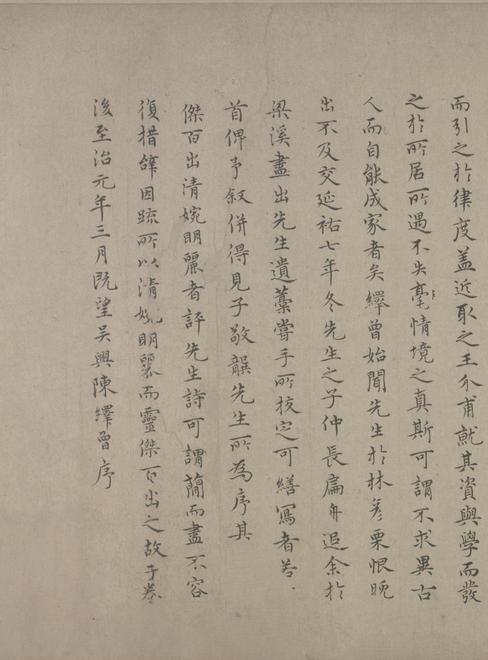 而引之於律度盖近取之王介甫就其資與學而發
之於所居所遇不失毫情境之真斯可謂不求異古
人而自能成家者矣繹曾始聞先生於林彦栗恨晚
出不及交延祐七年冬先生之子仲長扁舟追余於
梁溪盡出先生遺藁嘗手所校定可繕寫者若
首俾予叙併得見子敬龔先生所為序其
傑百出清婉明麗者評先生詩可謂蕳而盡不容
復措辞因疏所以清婉明麗而靈傑百出之故于卷
後至治元年三月既望吳興陳繹曾序